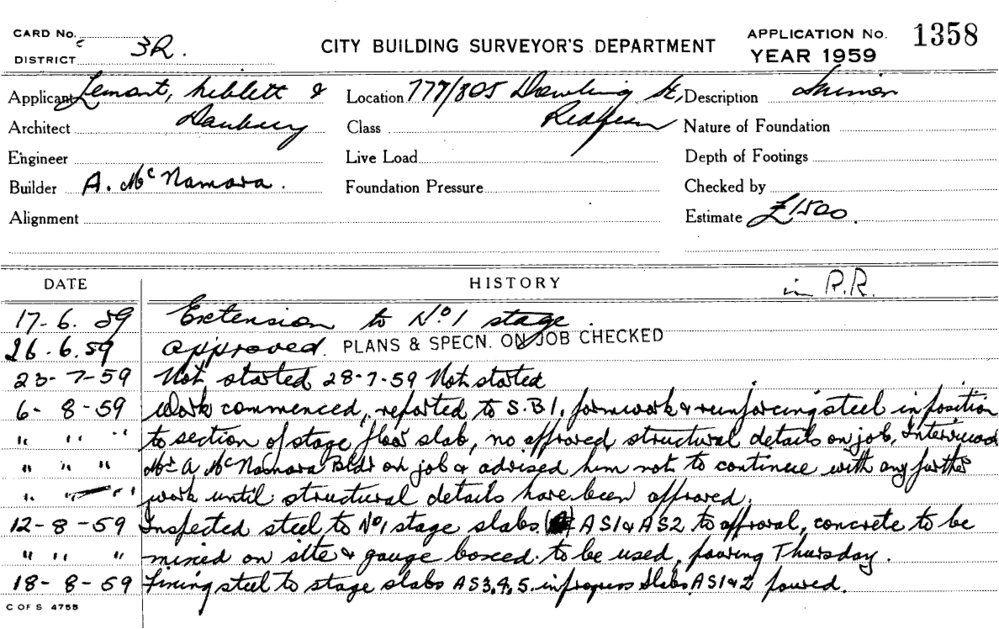 CARD No.
DISTRICT 3R.
CITY BUILDING SURVEYOR'S DEPARTMENT
APPLICATION No. 1358
YEAR 1959
Applicant Lemont, Niblett &
Architect Danbury
Engineer
Builder A. McNamara.
Alignment
Location 777/805 St,
Class Redfern
Live Load
Foundation Pressure
Description
Nature of Foundation
Depth of Footings
Checked by
Estimate £1500.
DATE HISTORY in P.R.
17-6.59 Extension to No1 stage.
26.6.59 approved. PLANS & SPECN. ON JOB CHECKED
23-7-59 Not started 28-7-59 Not started
6-8-59 Work commenced, reported to S.B.I. formwork & reinforcing steel in position
" " " to section of stage floor slab, no approved structural details on job, Interviewed
" " " Mr A McNamara Bldr on job & advised him not to continue with any further
" " " work until structural details have been approved.
12-8-59 Inspected steel to No1 stage slabs AS1 & AS2 to approval, concrete to be
" " " mixed on site & gauge boxed to be used, pouring Thursday.
18-8-59 Fixing steel to stage slabs AS3,4,5. in progress Slabs AS1&2 poured.
C OF S 475B